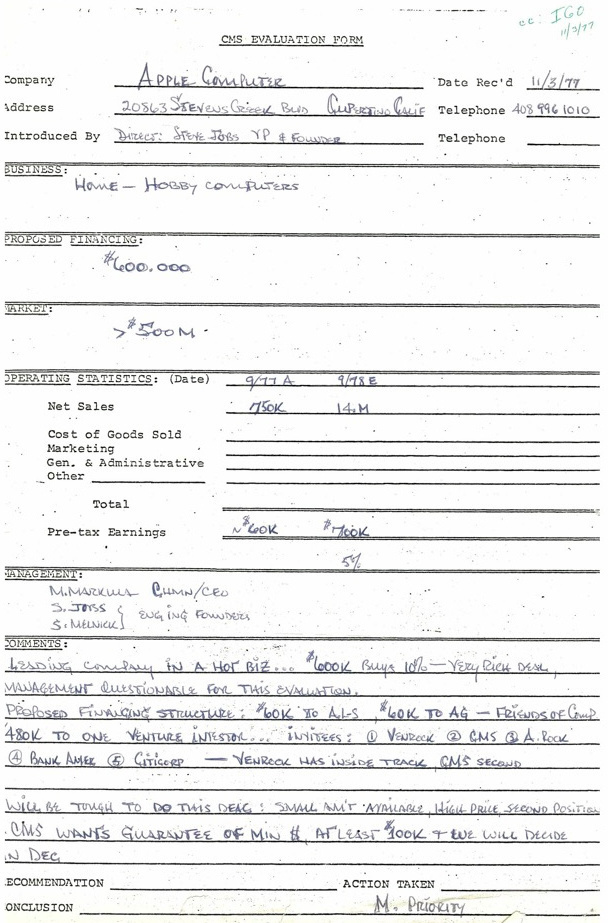 cc: IGO
11/3/77
CMS EVALUATION FORM
Company APPLE COMPUTER Date Rec'd 11/3/77
Address 20863 STEVENS CREEK BLVD CUPERTINO CALIF Telephone 408 996 1010
Introduced By DIRECT: STEVE JOBS VP & FOUNDER Telephone
BUSINESS:
HOME - HOBBY COMPUTERS
PROPOSED FINANCING:
$600.000
MARKET:
> $500M
OPERATING STATISTICS: (Date) 9/77 A 9/78 E
Net Sales 750K 14.M
Cost of Goods Sold
Marketing
Gen. & Administrative
Other
Total
Pre-tax Earnings ~$60K $700K
5%
MANAGEMENT:
M. MARKULA CHMN/CEO
S. JOBS } ENGING FOUNDERS
S. MELNICK
COMMENTS:
LEADING COMPANY IN A HOT BIZ... $600K BUYS 10% - VERY RICH DEAL,
MANAGEMENT QUESTIONABLE FOR THIS EVALUATION.
PROPOSED FINANCING STRUCTURE: $60K TO A.L-S, $60K TO AG - FRIENDS OF COMP
480K TO ONE VENTURE INVESTOR... INVITEES: ① VENROCK ② CMS ③ A. ROCK
④ BANK AMER ⑤ CITICORP - VENROCK HAS INSIDE TRACK, CMS SECOND
WILL BE TOUGH TO DO THIS DEAL: SMALL AM'T AVAILABLE, HIGH PRICE, SECOND POSITION
CMS WANTS GUARANTEE OF MIN $, AT LEAST $100K & WE WILL DECIDE
IN DEC
RECOMMENDATION ACTION TAKEN
CONCLUSION M. PRIORITY